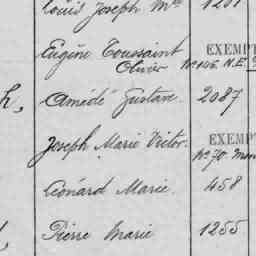 Louis Joseph Mie 1201
Eugène Toussaint EXEMPT
Olivier No 146. N.E.
h, Amédé Gustave 2087
EXEMPT
Joseph Marie Victor No 70.
Léonard Marie 458
Pierre Marie 1255